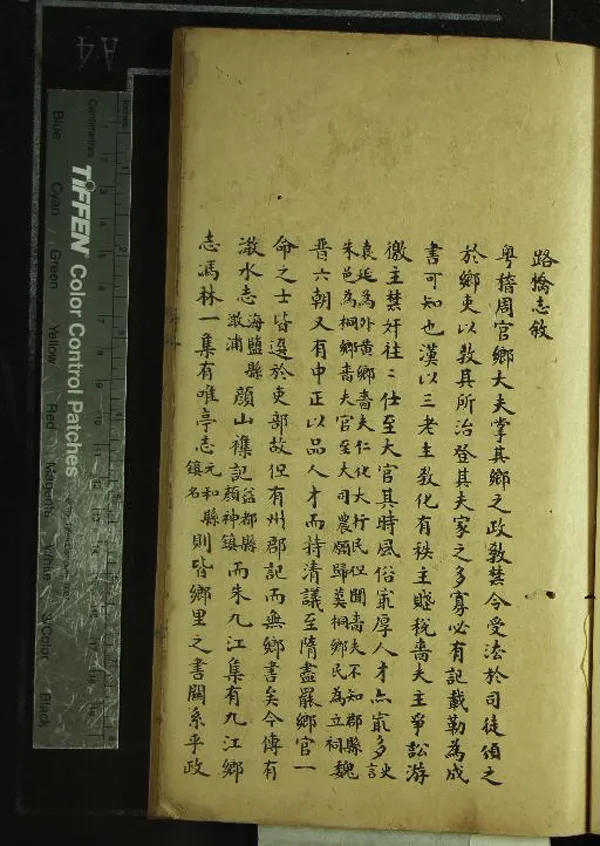 路橋志敘
粤稽周官鄉大夫掌其鄉之政教禁令受灋於司徒頒之
於鄉吏以教其所治登其夫家之多寡必有記載勒為成
書可知也漢以三老主教化有秩主賦稅嗇夫主爭訟游
徼主禁奸往〻仕至大官其時風俗㝡厚人才亦㝡多史言
爰延為外黃鄉嗇夫仁化大行民但聞嗇夫不知郡縣
朱邑為桐鄉嗇夫官至大司農願歸葬桐鄉民為立祠魏
晉六朝又有中正以品人才而持清議至隋盡罷鄉官一
命之士皆選於吏部故但有州郡記而無鄉書矣今傳有
澉水志海鹽縣澉浦顏山襍記益都縣顏神鎮而朱九江集有九江鄉
志馮林一集有唯亭志元和縣鎮名則皆鄉里之書關系乎政
A4
Inches
Centimetres
TIFFEN Color Control Patches
Blue
Cyan
Green
Yellow
Red
Magenta
White
3/Color
Black